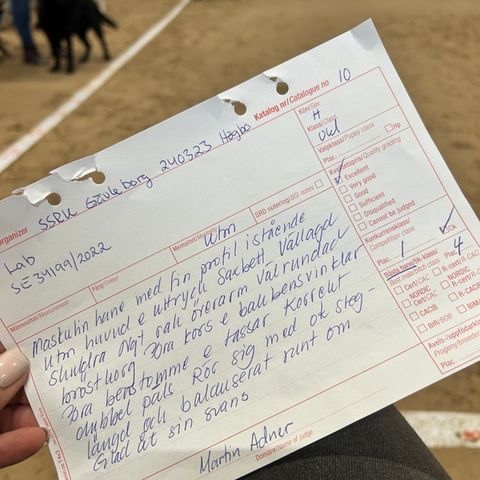 Katalog nr/Catalogue no 10
Organizer
SSRK Gävleborg 240323 Högbo
Kön/Sex
H
Klass/Class
Ukl
Valpklass/Puppy class
Plac.
Hp
Kvalitetspris/Quality grading
Excellent
Very good
Good
Sufficient
Disqualified
Cannot be judged
Konkurrensklass/
Competition class
Plac. 1
Ck
Bästa hane/tik-klass/
Best male/bitch class
Plac 4
Cert/CAC
R-cert/R-CAC
NORDIC
Cert/CAC
NORDIC
CACIB
BIR/BOB
Progeny/breeders
Plac.
Lab
SE34199/2022
Mätresultat/Measurement
Färg/Colour
Mentalitet/
Utm
SRD notering/BSI notes
Maskulin hane med fin profil istående
Utm huvud o uttryck Saxbett Vällagd
skuldra Ngt rak överarm välrundad
bröstkorg Bra kors o bakbensvinklar
Bra benstomme o tassar Korrekt
dubbel päls Rör sig med ok steg
längd och balanserat runt om
Glad åt sin svans
Martin Adner
Domare/Name of judge